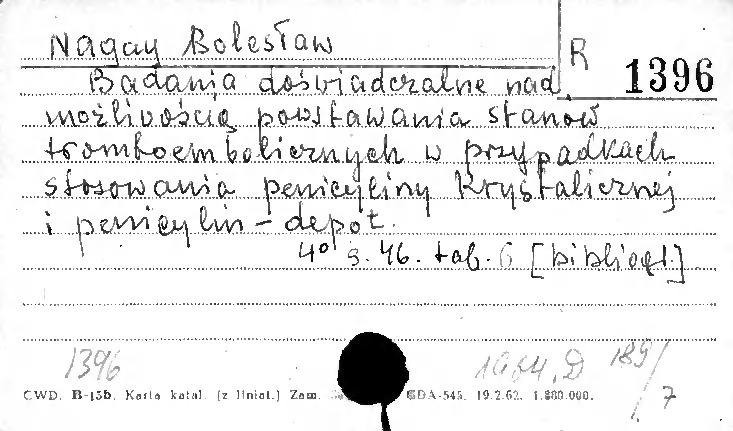 Nagay Bolesław
R 1396
Badania doświadczalne nad
możliwością powstawania stanów
tromboembolicznych w przypadkach
stosowania penicyliny krystalicznej
i penicylin – depot.
4° s. 46. tab. 6 [bibliogr.]
1396
1964. D 189/7
CWD. B-15b. Karta katal. (z liniat.) Zam. GDA-545. 19.2.62. 1.800.000.